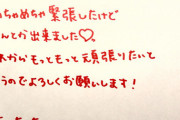 めちゃめちゃ緊張したけど
んとか出来ました♡
れからもっともっと頑張りたいと
うのでよろしくお願いします！